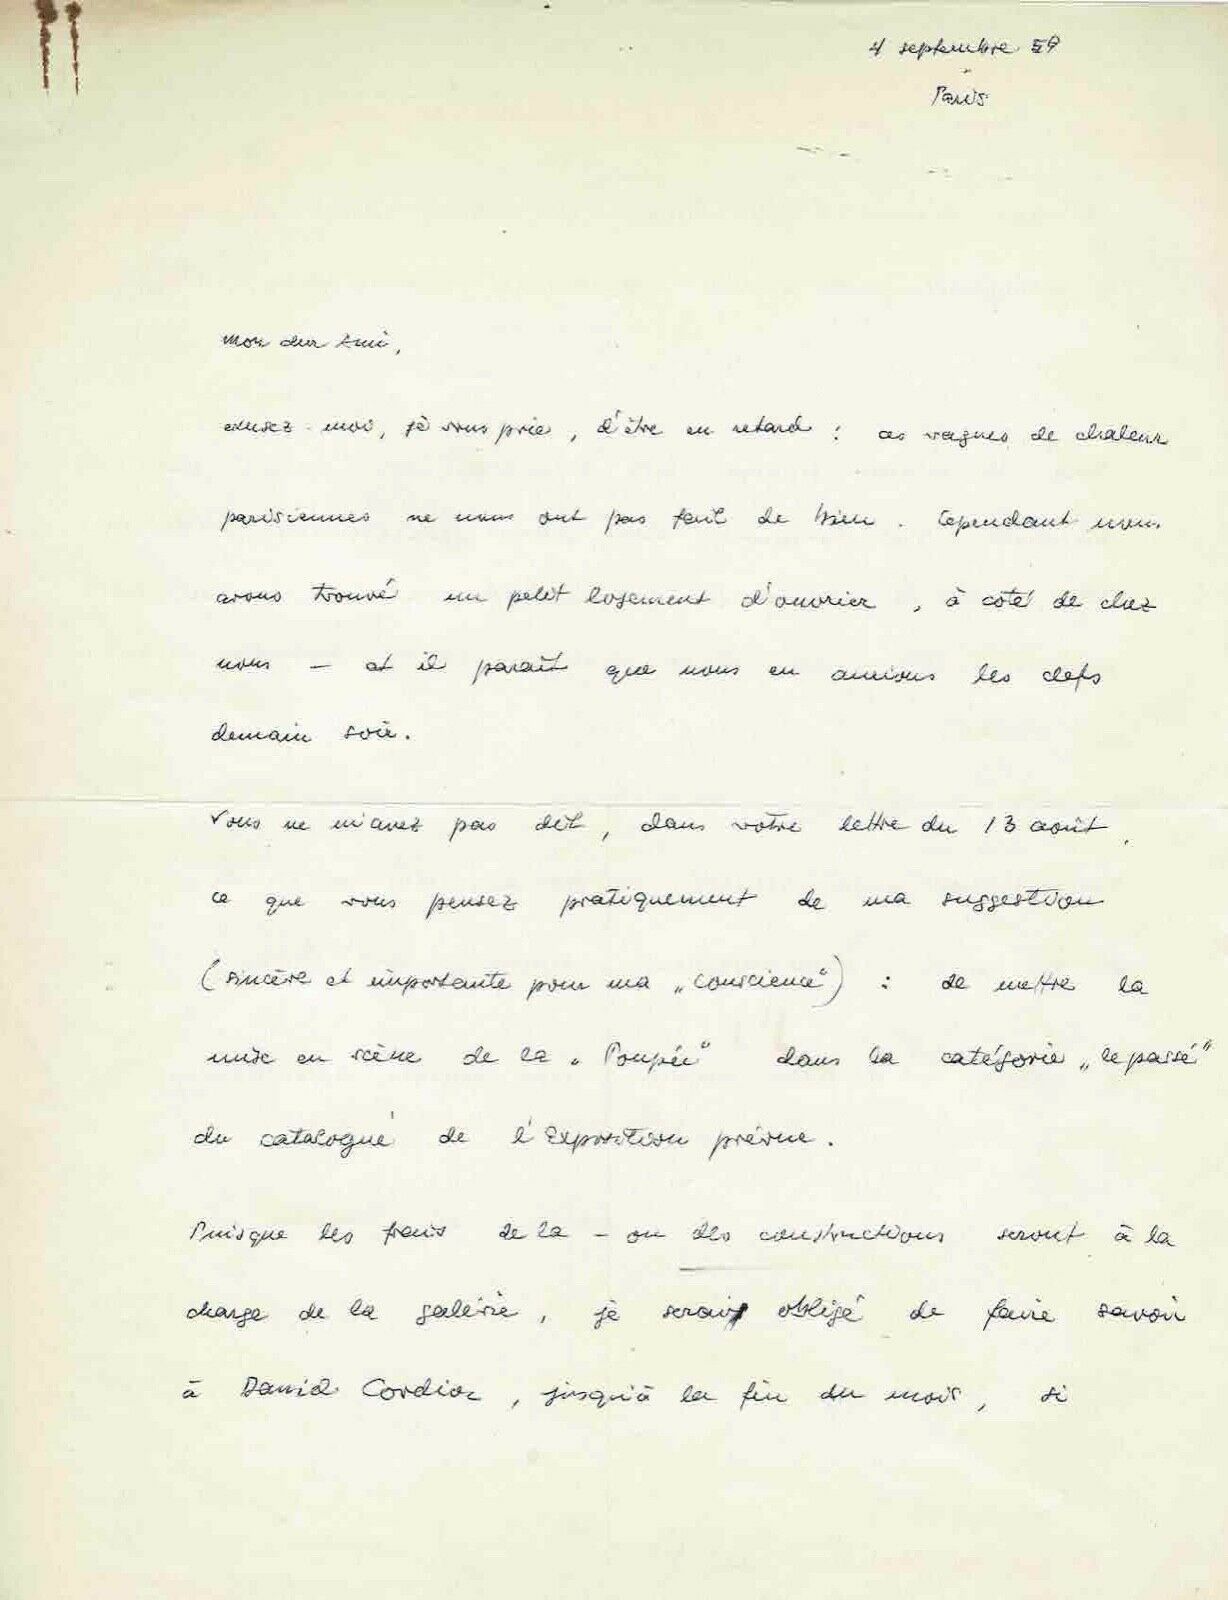 4 septembre 59
Paris
Mon cher Ami,
excusez-moi, je vous prie, d'être en retard : ces vagues de chaleur
parisiennes ne nous ont pas fait de bien. Cependant nous
avons trouvé un petit logement d'ouvrier, à coté de chez
nous — et il paraît que nous en aurions les clefs
demain soir.
Vous ne m'avez pas dit, dans votre lettre du 13 août,
ce que vous pensez pratiquement de ma suggestion
(sincère et importante pour ma „conscience“) : de mettre la
mise en scène de la „Poupée“ dans la catégorie „le passé“
du catalogue de l'Exposition prévue.
Puisque les frais de la — ou des constructions seront à la
charge de la galérie, je serais obligé de faire savoir
à Daniel Cordier, jusqu'à la fin du mois, si